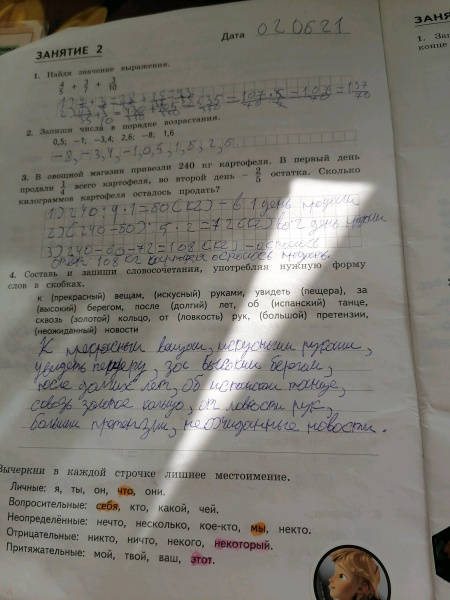 Дата 020621
ЗАНЯТИЕ 2
ЗАНЯ
1. Найди значение выражения.
4/5 + 3/7 + 3/10
2. Запиши числа в порядке возрастания.
0,5; -1; -3,4; 2,6; -8; 1,6
-8, -3,4, -1, 0,5, 1,
3. В овощной магазин привезли 240 кг картофеля. В первый день
продали 1/4 всего картофеля, во второй день – 2/5 остатка. Сколько
килограммов картофеля осталось продать?
(кг) - в 1 день продали
2) (240-60) : 5 · 2 = 72 (кг) во 2 день
3) 240-60-72=108 (кг) - осталось
108 кг картофеля осталось продать.
4. Составь и запиши словосочетания, употребляя нужную форму
слов в скобках.
к (прекрасный) вещам, (искусный) руками, увидеть (пещера), за
(высокий) берегом, после (долгий) лет, об (испанский) танце,
сквозь (золотой) кольцо, от (ловкость) рук, (большой) претензии,
(неожиданный) новости
К прекрасным вещам, искусными руками,
увидеть пещеру, за высоким берегом,
после долгих лет, об испанском танце,
сквозь золотое кольцо, от ловкости рук,
большие претензии, неожиданные новости.
Вычеркни в каждой строчке лишнее местоимение.
Личные: я, ты, он, что, они.
Вопросительные: себя, кто, какой, чей.
Неопределённые: нечто, несколько, кое-кто, мы, некто.
Отрицательные: никто, ничто, некого, некоторый.
Притяжательные: мой, твой, ваш, этот.